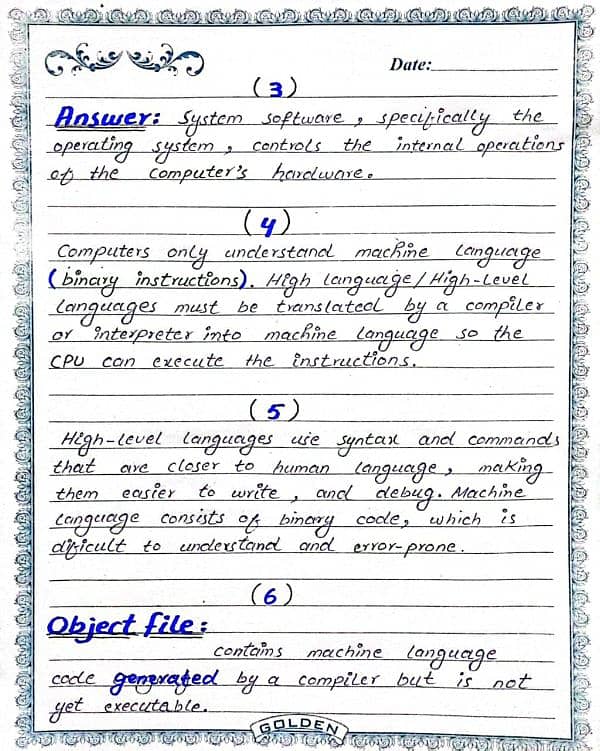 Date:
(3)
Answer: System software, specifically the
operating system, controls the internal operations
of the computer's hardware.
(4)
Computers only understand machine language
(binary instructions). High language/High-Level
languages must be translated by a compiler
or interpreter into machine language so the
CPU can execute the instructions.
(5)
High-level languages use syntax and commands
that are closer to human language, making
them easier to write, and debug. Machine
language consists of binary code, which is
difficult to understand and error-prone.
(6)
Object file:
contains machine language
code generated by a compiler but is not
yet executable.
GOLDEN